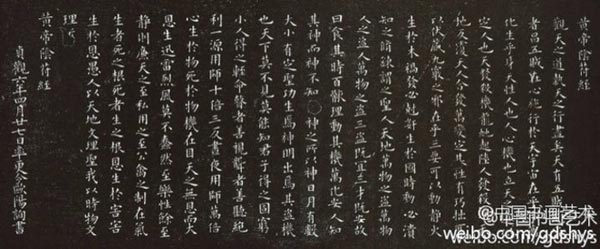 黄帝陰符經
觀天之道執天之行盡矣天有五賊
者昌五賊在心施行於天宇宙在
化生乎身天性人也人心機也立天之
人也天發殺機龍蛇起陸人發
地反覆天人合發萬變定基性有巧拙
以伏藏九竅之邪在乎三要可以動靜火
生於木禍發必剋姧生於國時動必潰
知之脩諫謂之聖人天地萬物之盜萬物
人之盜人萬物之盜三盜既宜三才既安
曰食其時百骸理動其機萬化安人知
其神而神不知神之所以神日月有數
大小有定聖功生焉神明出焉其盜機
也天下莫不見莫能知君子得之固躬
小人得之輕命瞽者善聽聾者善視絶
利一源用師十倍三反晝夜用師萬倍
心生於物死於物機在目天之無恩而大
恩生迅雷烈風莫不蠢然至樂性餘至
靜則廉天之至私用之至公禽之制在氣
生者死之根死者生之根恩生於害害
生於恩愚人以天地文理聖我以時物文
理
黄帝陰符經
貞觀六年四月十七日率更令歐陽詢書
@中国书画艺术
weibo.com/gdshys